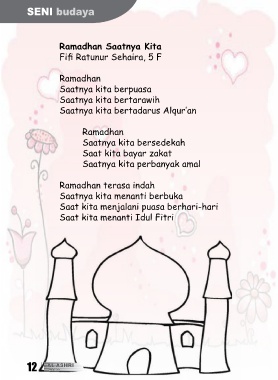 SENI budaya
Ramadhan Saatnya Kita
Fifi Ratunur Sehaira, 5 F
Ramadhan
Saatnya kita berpuasa
Saatnya kita bertarawih
Saatnya kita bertadarus Alqur'an
Ramadhan
Saatnya kita bersedekah
Saat kita bayar zakat
Saatnya kita perbanyak amal
Ramadhan terasa indah
Saatnya kita menanti berbuka
Saat kita menjalani puasa berhari-hari
Saat kita menanti Idul Fitri
12